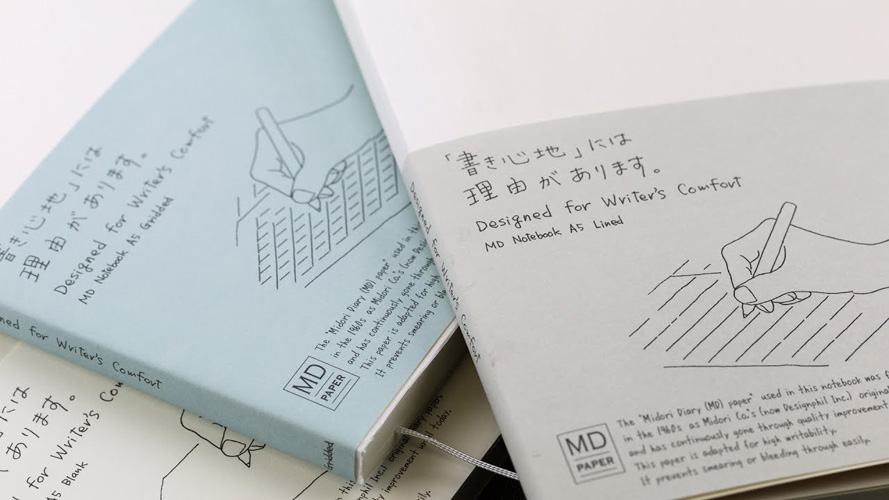 「書き心地」には
理由があります。
Designed for Writer's Comfort
MD Notebook A5 Lined
MD
PAPER
The "Midori Diary (MD) paper" used in this notebook was
in the 1960s as Midori Co.'s (now Designphil Inc.) original
and has continuously gone through quality improvement
This paper is adapted for high writability.
It prevents smearing or bleeding through easily.
Designed for Writer's Comfort
書き心地」には
理由があります。
Designed for Writer's Comfort
MD Notebook A5 Gridded
MD
PAPER
The "Midori Diary (MD) paper" used in
in the 1960s as Midori Co.'s (now
and has continuously gone through
This paper is adapted for high
It prevents smearing or
for Writer's Comfort
Gridded
には
ります。
for Writer's Com
A5 Blank
Inc.) original
improvement
today.